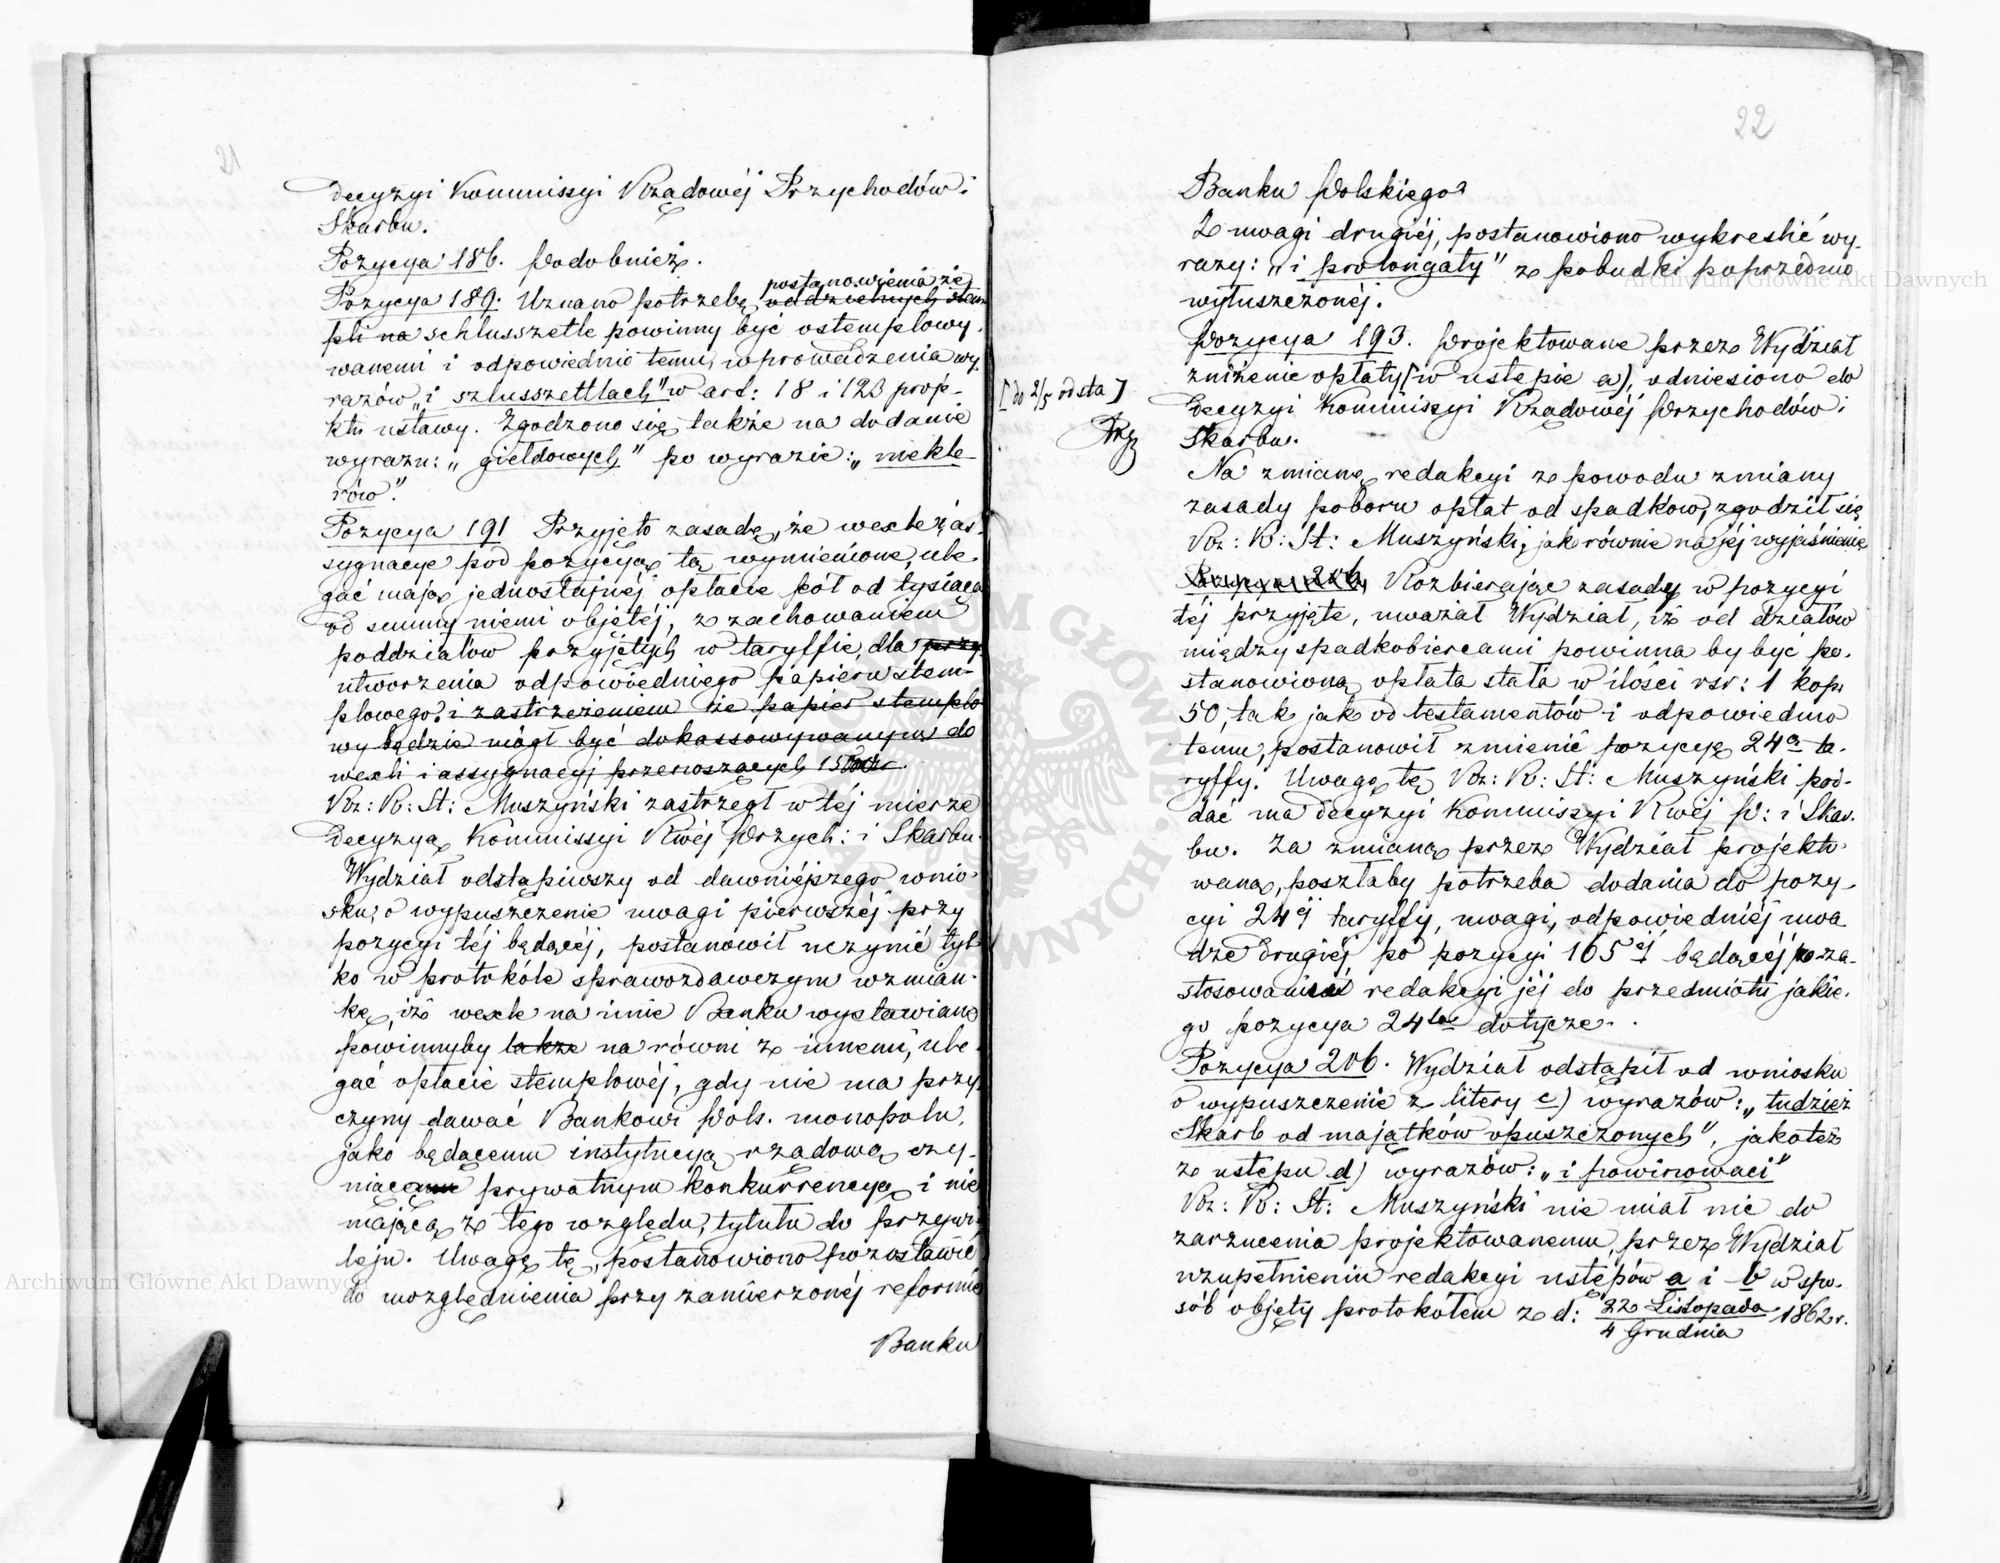 21
decyzyi Kommissyi Rządowéj Przychodów i
Skarbu.
Pozycya 186. Podobnież.
postanowienia że
Pozycya 189. Uznano potrzebę oddzielnych stem
pli na schlusszetle powinny być ostemplowy.
wanemi i odpowiednio temu, wprowadzenia wy.
razów „i szlusszettlach" w art: 18 i 123 proje-
ktu ustawy. Zgodzono się także na dodanie
wyrazu: „giełdowych" po wyrazie: „mekle-
rów".
Pozycya 191 Przyjęto zasadę, że wexle i as
sygnacye pod pozycyą tą wymienione, ule-
gać mają jednostajnéj opłacie pół od tysiąca
od summy niemi objętéj, z zachowaniem
poddziałów przyjętych w taryffie, dla przy
utworzenia odpowiedniego papieru stem-
plowego i zastrzeżeniem że papier stemplo
wy będzie mógł być dokassowywanym do
wexli i assygnacyj przenoszących 15000
Rz: R: St: Muszyński zastrzegł w téj mierze
decyzyą Kommissyi Rwéj Przych: i Skarbu.
Wydział odstąpiwszy od dawniéjszego wnio-
sku, o wypuszczenie uwagi pierwszéj przy
pozycyi téj będącéj, postanowił uczynić tyl-
ko w protokóle sprawozdawczym wzmian-
kę, iż wexle na imie Banku wystawiane
powinnyby także na równi z innemi, ule-
gać opłacie stemplowéj, gdy nie ma przy
czyny dawać Bankowi Pols. monopolu,
jako będącemu instytucyą rządową czy-
niącemu prywatnym konkurrencyą i nie
mającą z tego względu, tytułu do przywi-
leju. Uwagę tę, postanowiono pozostawić
do uwzględnienia przy zamierzonéj reformie
Banku
22
Banku Polskiego
Z uwagi drugiéj, postanowiono wykreslić wy-
razy: „i prolongaty" z pobudki poprzednio
wyłuszczonéj.
Pozycya 193. Projektowane przez Wydział
zniżenie opłaty (w ustępie a), odniesiono do
[do 2/5 odsta]
decyzyi Kommissyi Rządowéj Przychodów i
Skarbu.
Na zmianę redakcyi z powodu zmiany
zasady poboru opłat od spadków, zgodził się
Rz: R: St: Muszyński, jak równie na jéj wyjaśnienie
Pozycya 206. Rozbierając zasady w pozycyi
téj przyjęte, uważał Wydział, iż od działów
między spadkobiercami powinna by być po-
stanowioną opłata stała w ilości rsr: 1 kop.
50, tak jak od testamentów i odpowiednio
temu, postanowił zmienić pozycyę 24ą ta-
ryffy. Uwagę tę Rz: R: St: Muszyński pod-
dać ma decyzyi Kommissyi Rwéj P: i Skar-
bu. Za zmianą przez Wydział projekto-
waną, poszłaby potrzeba dodania do pozy-
cyi 24éj taryffy, uwagi, odpowiedniéj uwa
dze drugiéj po pozycyi 105éj będącéj po za-
stosowaniu redakcyi jéj do przedmiotu jakie-
go pozycya 24ta dotycze.
Pozycya 206. Wydział odstąpił od wniosku
o wypuszczenie z litery c) wyrazów: „tudzież
Skarb od majątków opuszczonych", jakoteż
z ustępu d) wyrazów: „i powinowaci"
Rz: R: St: Muszyński nie miał nic do
zarzucenia projektowanemu, przez Wydział
uzupełnieniu redakcyi ustępów a i b w spo-
sób objęty protokółem z d: 22 Listopada / 4 Grudnia 1862 r.
Archiwum Główne Akt Dawnych
Archiwum Główne Akt Dawnych